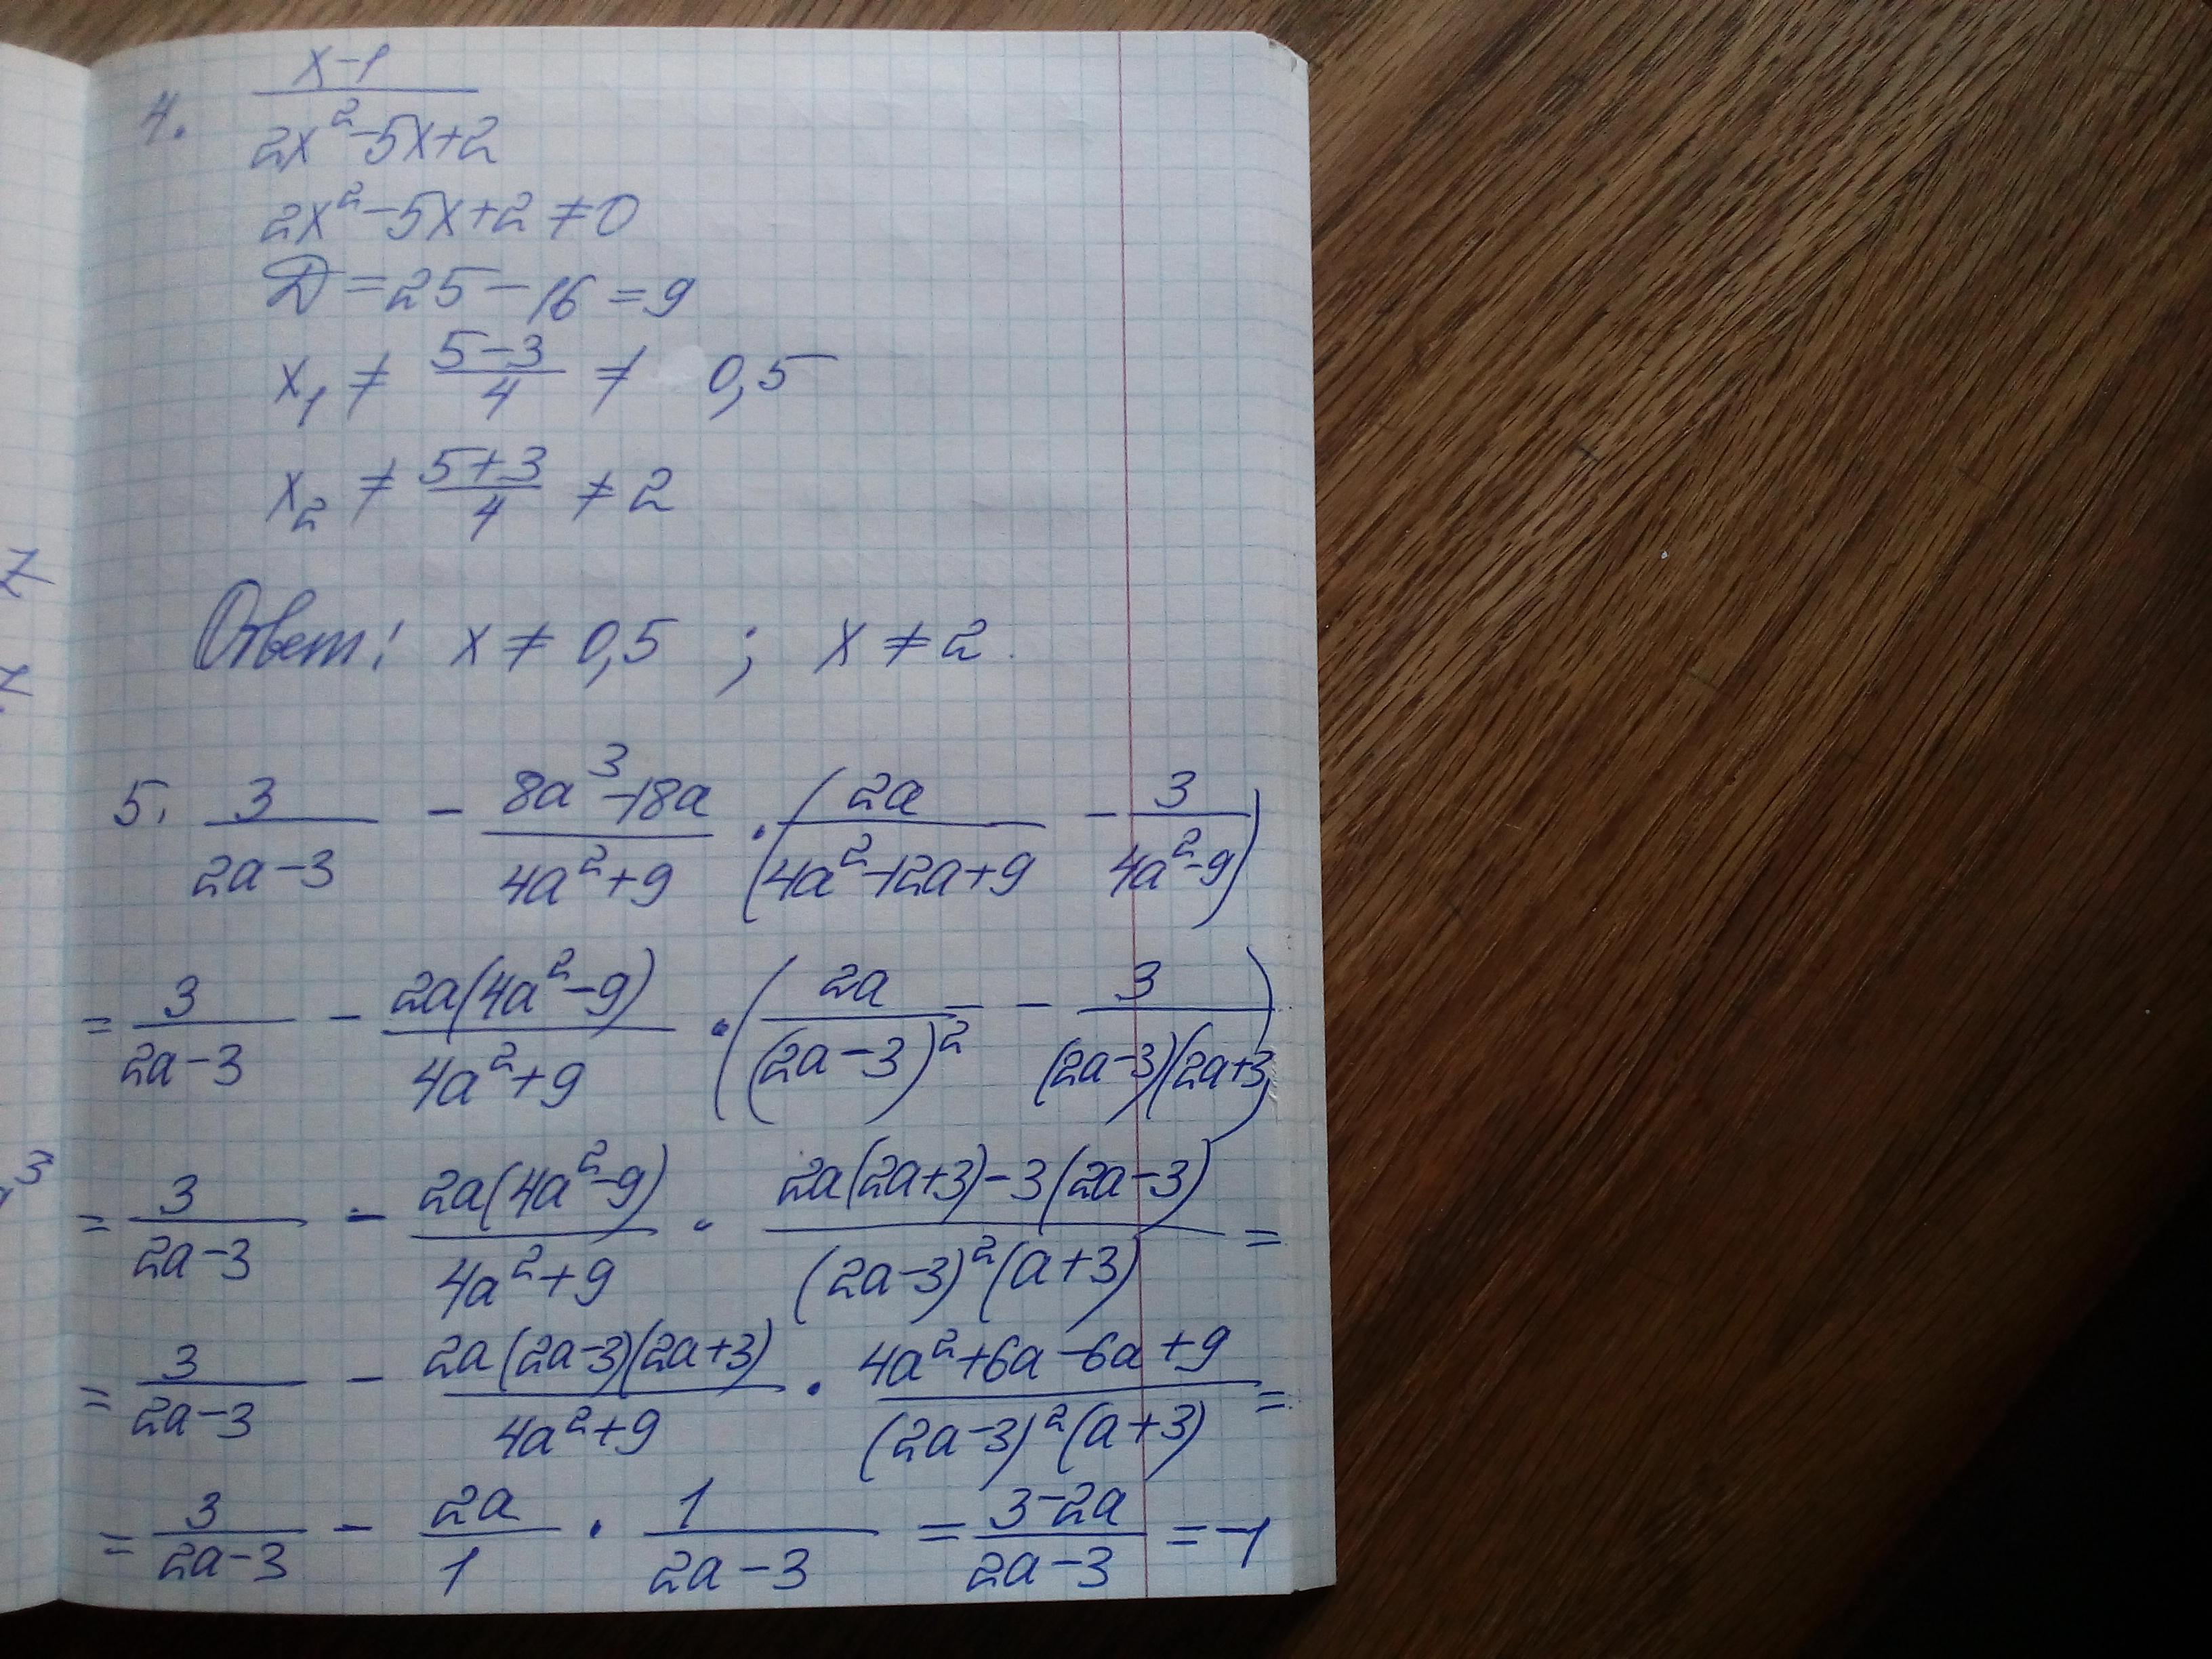 4. (x-1)/(2x²-5x+2)
2x²-5x+2≠0
D=25-16=9
x₁ ≠ (5-3)/4 ≠ 0,5
x₂ ≠ (5+3)/4 ≠ 2
Ответ: x ≠ 0,5 ; x ≠ 2.
5. 3/(2a-3) - (8a³-18a)/(4a²+9) · (2a/(4a²-12a+9) - 3/(4a²-9))
= 3/(2a-3) - 2a(4a²-9)/(4a²+9) · (2a/(2a-3)² - 3/((2a-3)(2a+3)))
= 3/(2a-3) - 2a(4a²-9)/(4a²+9) · (2a(2a+3)-3(2a-3))/((2a-3)²(a+3)) =
= 3/(2a-3) - 2a(2a-3)(2a+3)/(4a²+9) · (4a²+6a-6a+9)/((2a-3)²(a+3)) =
= 3/(2a-3) - 2a/1 · 1/(2a-3) = (3-2a)/(2a-3) = -1